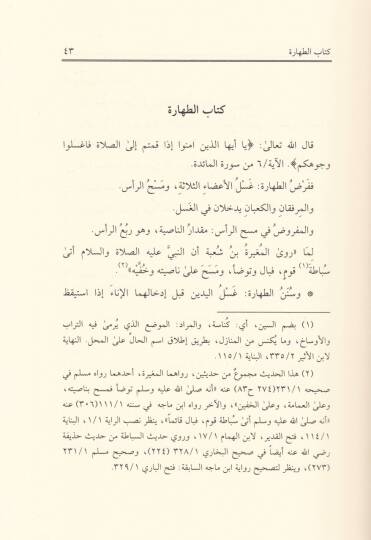 كتاب الطهارة ٤٣
كتاب الطهارة
قال الله تعالىٰ: ﴿يا أيها الذين آمنوا إذا قمتم إلىٰ الصلاة فاغسلوا
وجوهكم﴾. الآية/٦ من سورة المائدة.
ففَرْضُ الطهارة: غَسْلُ الأعضاءِ الثلاثةِ، ومَسْحُ الرأس.
والمِرفقان والكعبان يدخلان في الغَسل.
والمفروضُ في مسح الرأس: مقدارُ الناصية، وهو ربُعُ الرأس.
لِمَا «روىٰ المُغيرةُ بنُ شُعبة أن النبيَّ عليه الصلاة والسلام أتىٰ
سُبَاطةَ(١) قومٍ، فبال وتوضأ، ومَسَحَ علىٰ ناصيته وخُفَّيْه»(٢).
* وسُنَنُ الطهارة: غَسْلُ اليدين قبل إدخالهما الإناءَ إذا استيقظ
(١) بضم السين، أي: كُناسة، والمراد: الموضع الذي يُرمىٰ فيه التراب
والأوساخ، وما يُكنس من المنازل، بطريق إطلاق اسم الحالِّ علىٰ المحل. النهاية
لابن الأثير ٣٣٥/٢، البناية ١١٥/١.
(٢) هذا الحديث مجموعٌ من حديثين، رواهما المغيرة، أحدهما رواه مسلم في
صحيحه ٢٣١/١(٢٧٤ ح٨٣) عنه «أنه صلىٰ الله عليه وسلم توضأ فمسح بناصيته،
وعلىٰ العمامة، وعلىٰ الخفين»، والآخر رواه ابن ماجه في سننه ١١١/١(٣٠٦) عنه
«أنه صلىٰ الله عليه وسلم أتىٰ سُباطة قوم، فبال قائماً»، ينظر نصب الراية ١/١، البناية
١١٤/١، فتح القدير، لابن الهمام ١٧/١، وروي حديث السباطة من حديث حذيفة
رضي الله عنه أيضاً في صحيح البخاري ٣٢٨/١ (٢٢٤)، وصحيح مسلم ٢٣١/١
(٢٧٣)، وينظر لتصحيح رواية ابن ماجه السابقة: فتح الباري ٣٢٩/١.